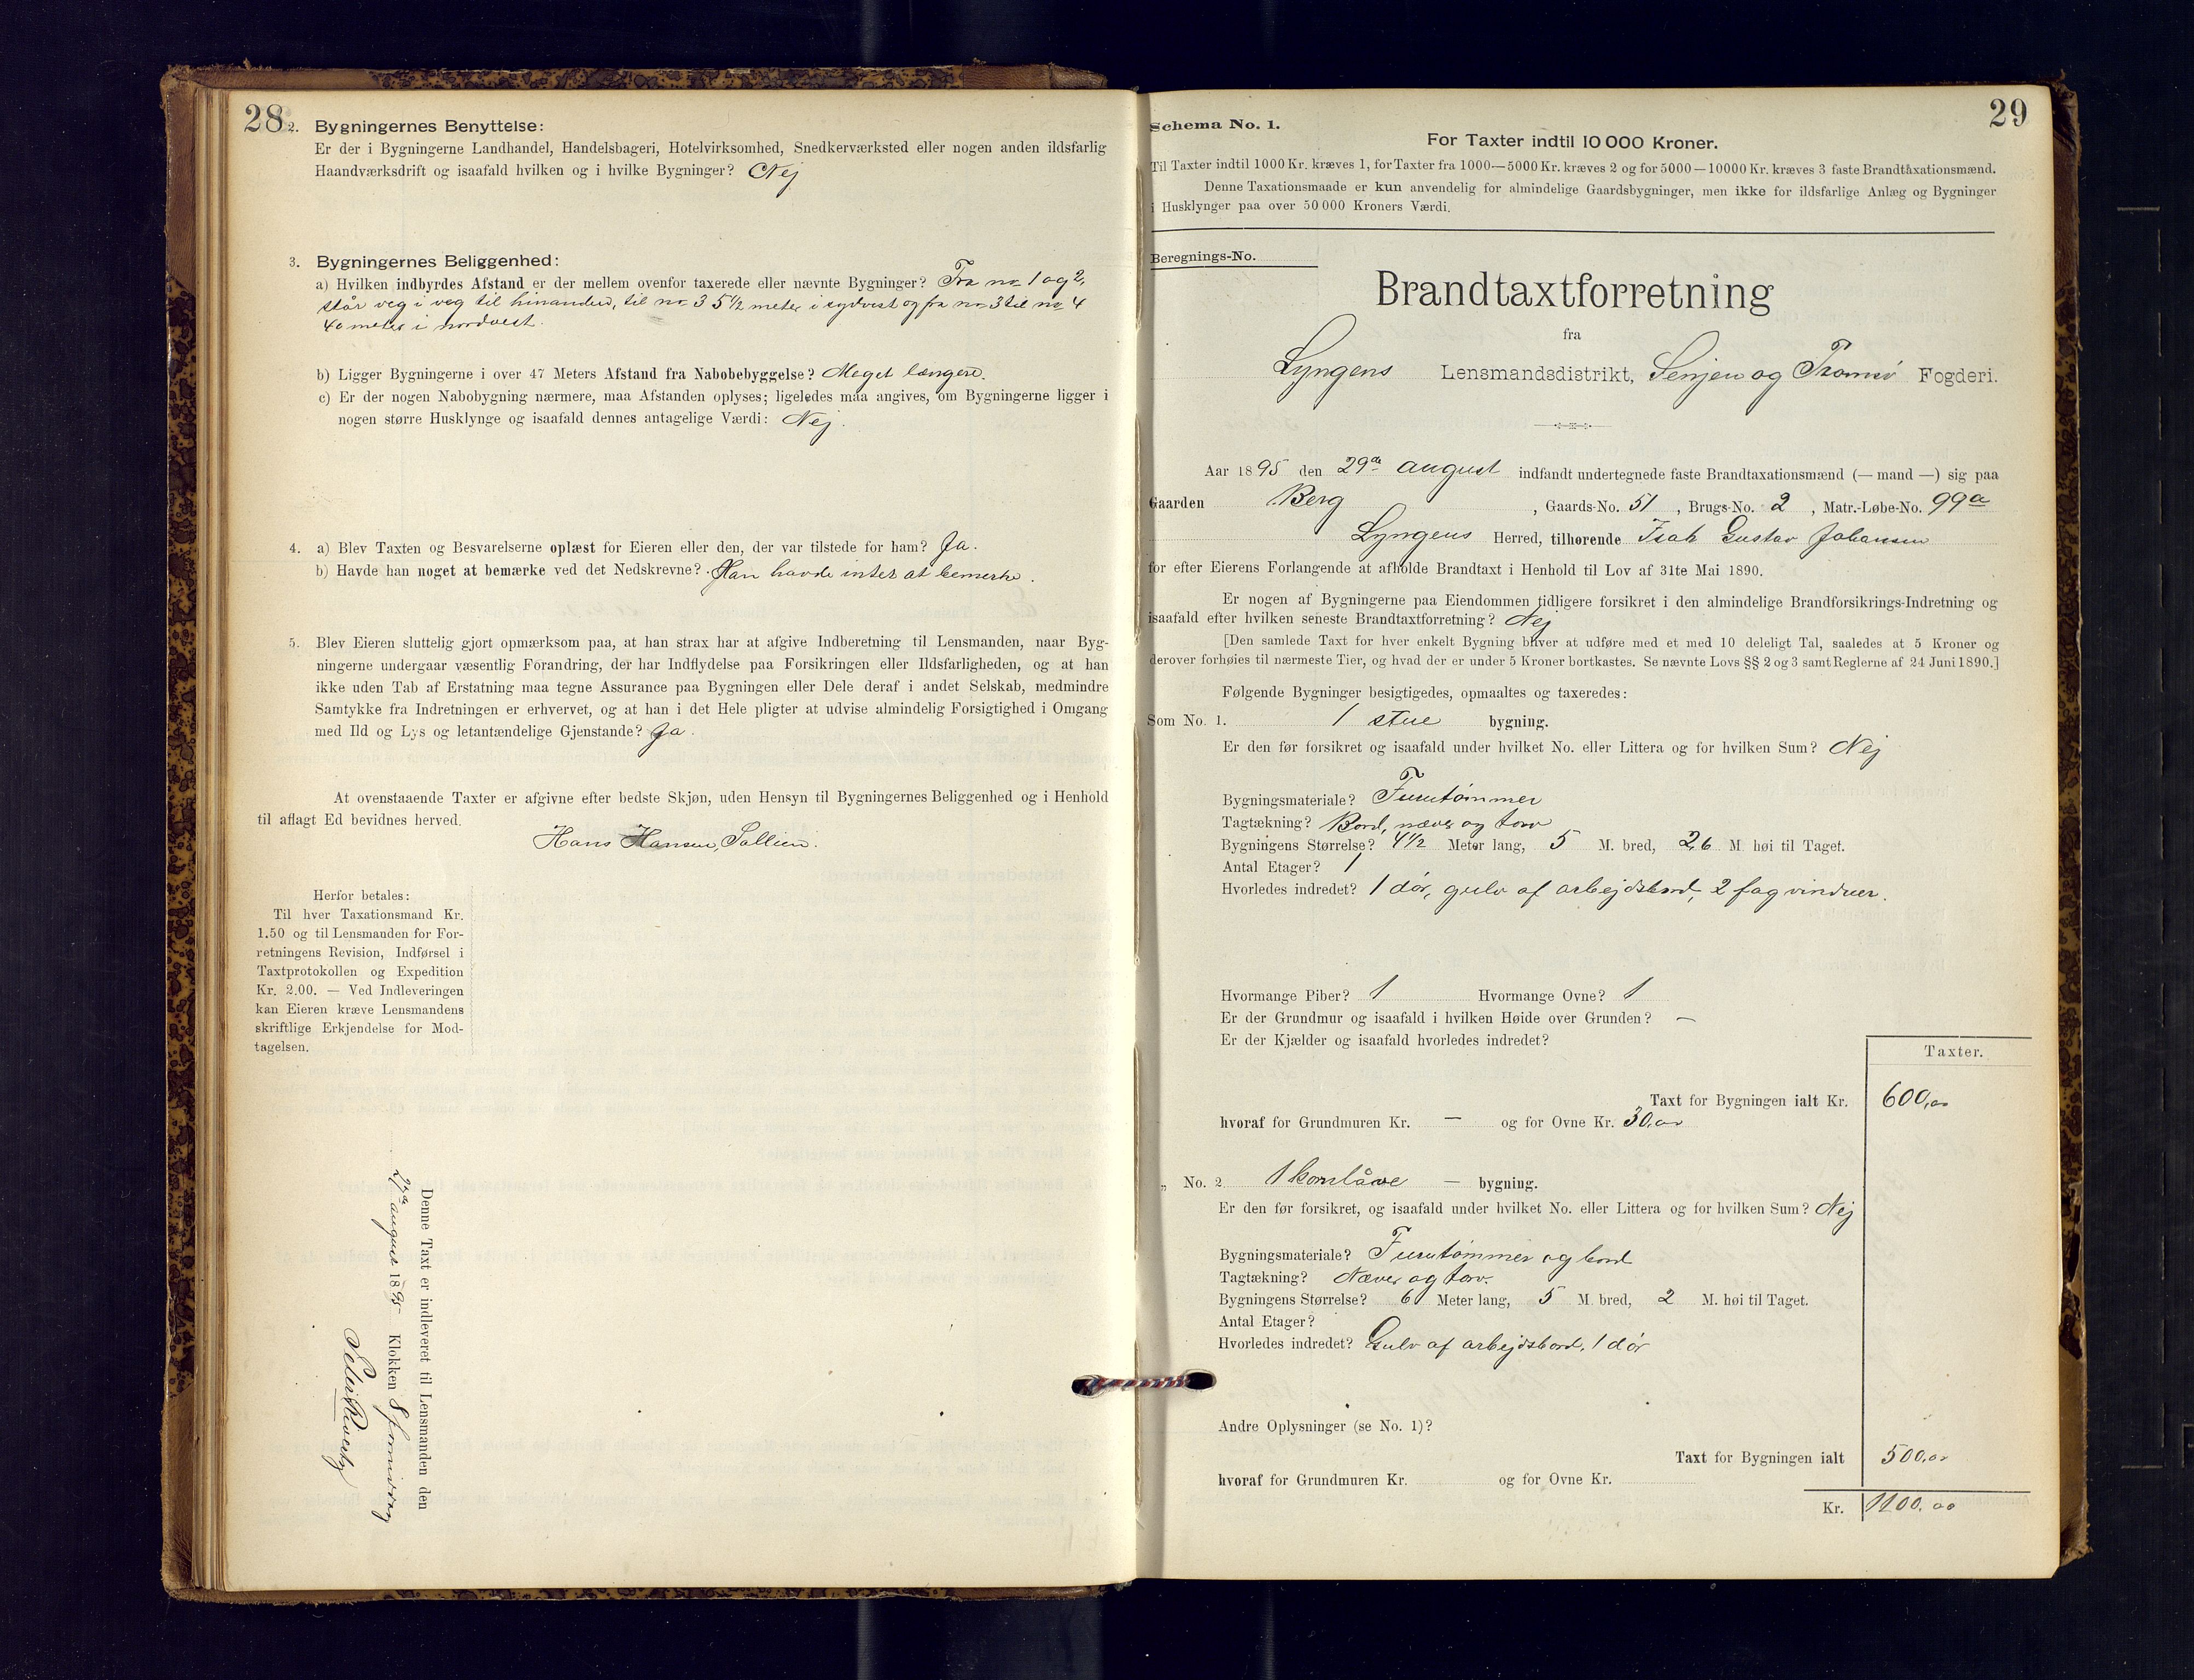 28
2. Bygningernes Benyttelse:
Er der i Bygningerne Landhandel, Handelsbageri, Hotelvirksomhed, Snedkerværksted eller nogen anden ildsfarlig
Haandværksdrift og isaafald hvilken og i hvilke Bygninger? Nej
3. Bygningernes Beliggenhed:
a) Hvilken indbyrdes Afstand er der mellem ovenfor taxerede eller nævnte Bygninger? Fra no 1 og 2,
står veg i veg til hinanden, til no 3 5 1/2 meter i sydvest og fra no 3 til no 4
40 meter i nordvest.
b) Ligger Bygningerne i over 47 Meters Afstand fra Nabobebyggelse? Meget længere.
c) Er der nogen Nabobygning nærmere, maa Afstanden oplyses; ligeledes maa angives, om Bygningerne ligger i
nogen større Husklynge og isaafald dennes antagelige Værdi: Nej.
4. a) Blev Taxten og Besvarelserne oplæst for Eieren eller den, der var tilstede for ham? Ja.
b) Havde han noget at bemærke ved det Nedskrevne? Han havde intet at bemerke.
5. Blev Eieren sluttelig gjort opmærksom paa, at han strax har at afgive Indberetning til Lensmanden, naar Byg-
ningerne undergaar væsentlig Forandring, der har Indflydelse paa Forsikringen eller Ildsfarligheden, og at han
ikke uden Tab af Erstatning maa tegne Assurance paa Bygningen eller Dele deraf i andet Selskab, medmindre
Samtykke fra Indretningen er erhvervet, og at han i det Hele pligter at udvise almindelig Forsigtighed i Omgang
med Ild og Lys og letantændelige Gjenstande? Ja.
At ovenstaaende Taxter er afgivne efter bedste Skjøn, uden Hensyn til Bygningernes Beliggenhed og i Henhold
til aflagt Ed bevidnes herved.
Hans Hansen,
Herfor betales:
Til hver Taxationsmand Kr.
1.50 og til Lensmanden for For-
retningens Revision, Indførsel i
Taxtprotokollen og Expedition
Kr. 2.00. — Ved Indleveringen
kan Eieren kræve Lensmandens
skriftlige Erkjendelse for Mod-
tagelsen.
Denne Taxt er indleveret til Lensmanden den
august 1895 Klokken 8 formiddag
29
Schema No. 1.
For Taxter indtil 10 000 Kroner.
Til Taxter indtil 1000 Kr. kræves 1, for Taxter fra 1000—5000 Kr. kræves 2 og for 5000—10000 Kr. kræves 3 faste Brandtaxationsmænd.
Denne Taxationsmaade er kun anvendelig for almindelige Gaardsbygninger, men ikke for ildsfarlige Anlæg og Bygninger
i Husklynger paa over 50 000 Kroners Værdi.
Beregnings-No.
Brandtaxtforretning
fra
Lyngens Lensmandsdistrikt, Senjen og Tromsø Fogderi.
Aar 1895 den 29de august indfandt undertegnede faste Brandtaxationsmænd (— mand —) sig paa
Gaarden Berg, Gaards-No. 51, Brugs-No. 2, Matr.-Løbe-No. 99a
Lyngens Herred, tilhørende Isak Gustav Johansen
for efter Eierens Forlangende at afholde Brandtaxt i Henhold til Lov af 31te Mai 1890.
Er nogen af Bygningerne paa Eiendommen tidligere forsikret i den almindelige Brandforsikrings-Indretning og
isaafald efter hvilken seneste Brandtaxtforretning? Nej
[Den samlede Taxt for hver enkelt Bygning bliver at udføre med et med 10 deleligt Tal, saaledes at 5 Kroner og
derover forhøies til nærmeste Tier, og hvad der er under 5 Kroner bortkastes. Se nævnte Lovs §§ 2 og 3 samt Reglerne af 24 Juni 1890.]
Følgende Bygninger besigtigedes, opmaaltes og taxeredes:
Som No. 1. 1 stue bygning.
Er den før forsikret og isaafald under hvilket No. eller Littera og for hvilken Sum? Nej
Bygningsmateriale? Furutømmer
Tagtækning? Bord, næver og torv
Bygningens Størrelse? 4 1/2 Meter lang, 5 M. bred, 2,6 M. høi til Taget.
Antal Etager? 1
Hvorledes indredet? 1 dør, gulv af arbejdsbord, 2 fag vinduer.
Hvormange Piber? 1 Hvormange Ovne? 1
Er der Grundmur og isaafald i hvilken Høide over Grunden? —
Er der Kjælder og isaafald hvorledes indredet?
Taxter.
Taxt for Bygningen ialt Kr. 600,00
hvoraf for Grundmuren Kr. — og for Ovne Kr. 30,00
„ No. 2 1 kornlåve — bygning.
Er den før forsikret, og isaafald under hvilket No. eller Littera og for hvilken Sum? Nej
Bygningsmateriale? Furutømmer og bord
Tagtækning? Næver og torv.
Bygningens Størrelse? 6 Meter lang, 5 M. bred, 2 M. høi til Taget.
Antal Etager?
Hvorledes indredet? Gulv af arbejdsbord, 1 dør
Andre Oplysninger (se No. 1)?
Taxt for Bygningen ialt 500,00
hvoraf for Grundmuren Kr. og for Ovne Kr.
Kr. 1100,00